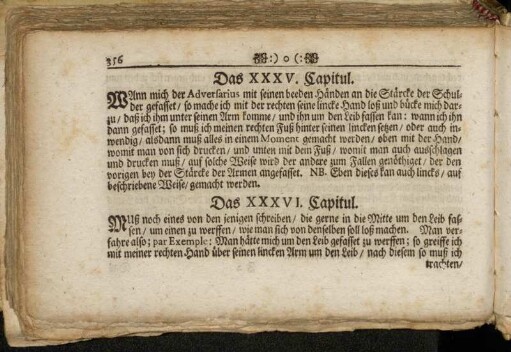 356 :) o (:
Das XXXV. Capitul.
WAnn mich der Adversarius mit seinen beeden Händen an die Stärcke der Schul-
der gefasset / so mache ich mit der rechten seine lincke Hand loß und bücke mich dar-
zu / daß ich ihm unter seinen Arm komme / und ihn um den Leib fassen kan: wann ich ihn
dann gefasset; so muß ich meinen rechten Fuß hinter seinen lincken setzen / oder auch in-
wendig / alsdann muß alles in einem Moment gemacht werden / oben mit der Hand /
womit man von sich drucken / und unten mit den Fuß / womit man auch ausschlagen
und drucken muß / auf solche Weise wird der andere zum Fallen genöthiget / der den
vorigen bey der Stärcke der Armen angefasset. NB. Eben dieses kan auch lincks / auf
beschriebene Weise / gemacht werden.
Das XXXVI. Capitul.
MUß noch eines von den jenigen schreiben / die gerne in die Mitte um den Leib fas-
sen / um einen zu werffen / wie man sich von denselben soll loß machen. Man ver-
fahre also; par Exemple: Man hätte mich um den Leib gefasset zu werffen; so greiffe ich
mit meiner rechten Hand über seinen lincken Arm um den Leib / nach diesem so muß ich
trachten /